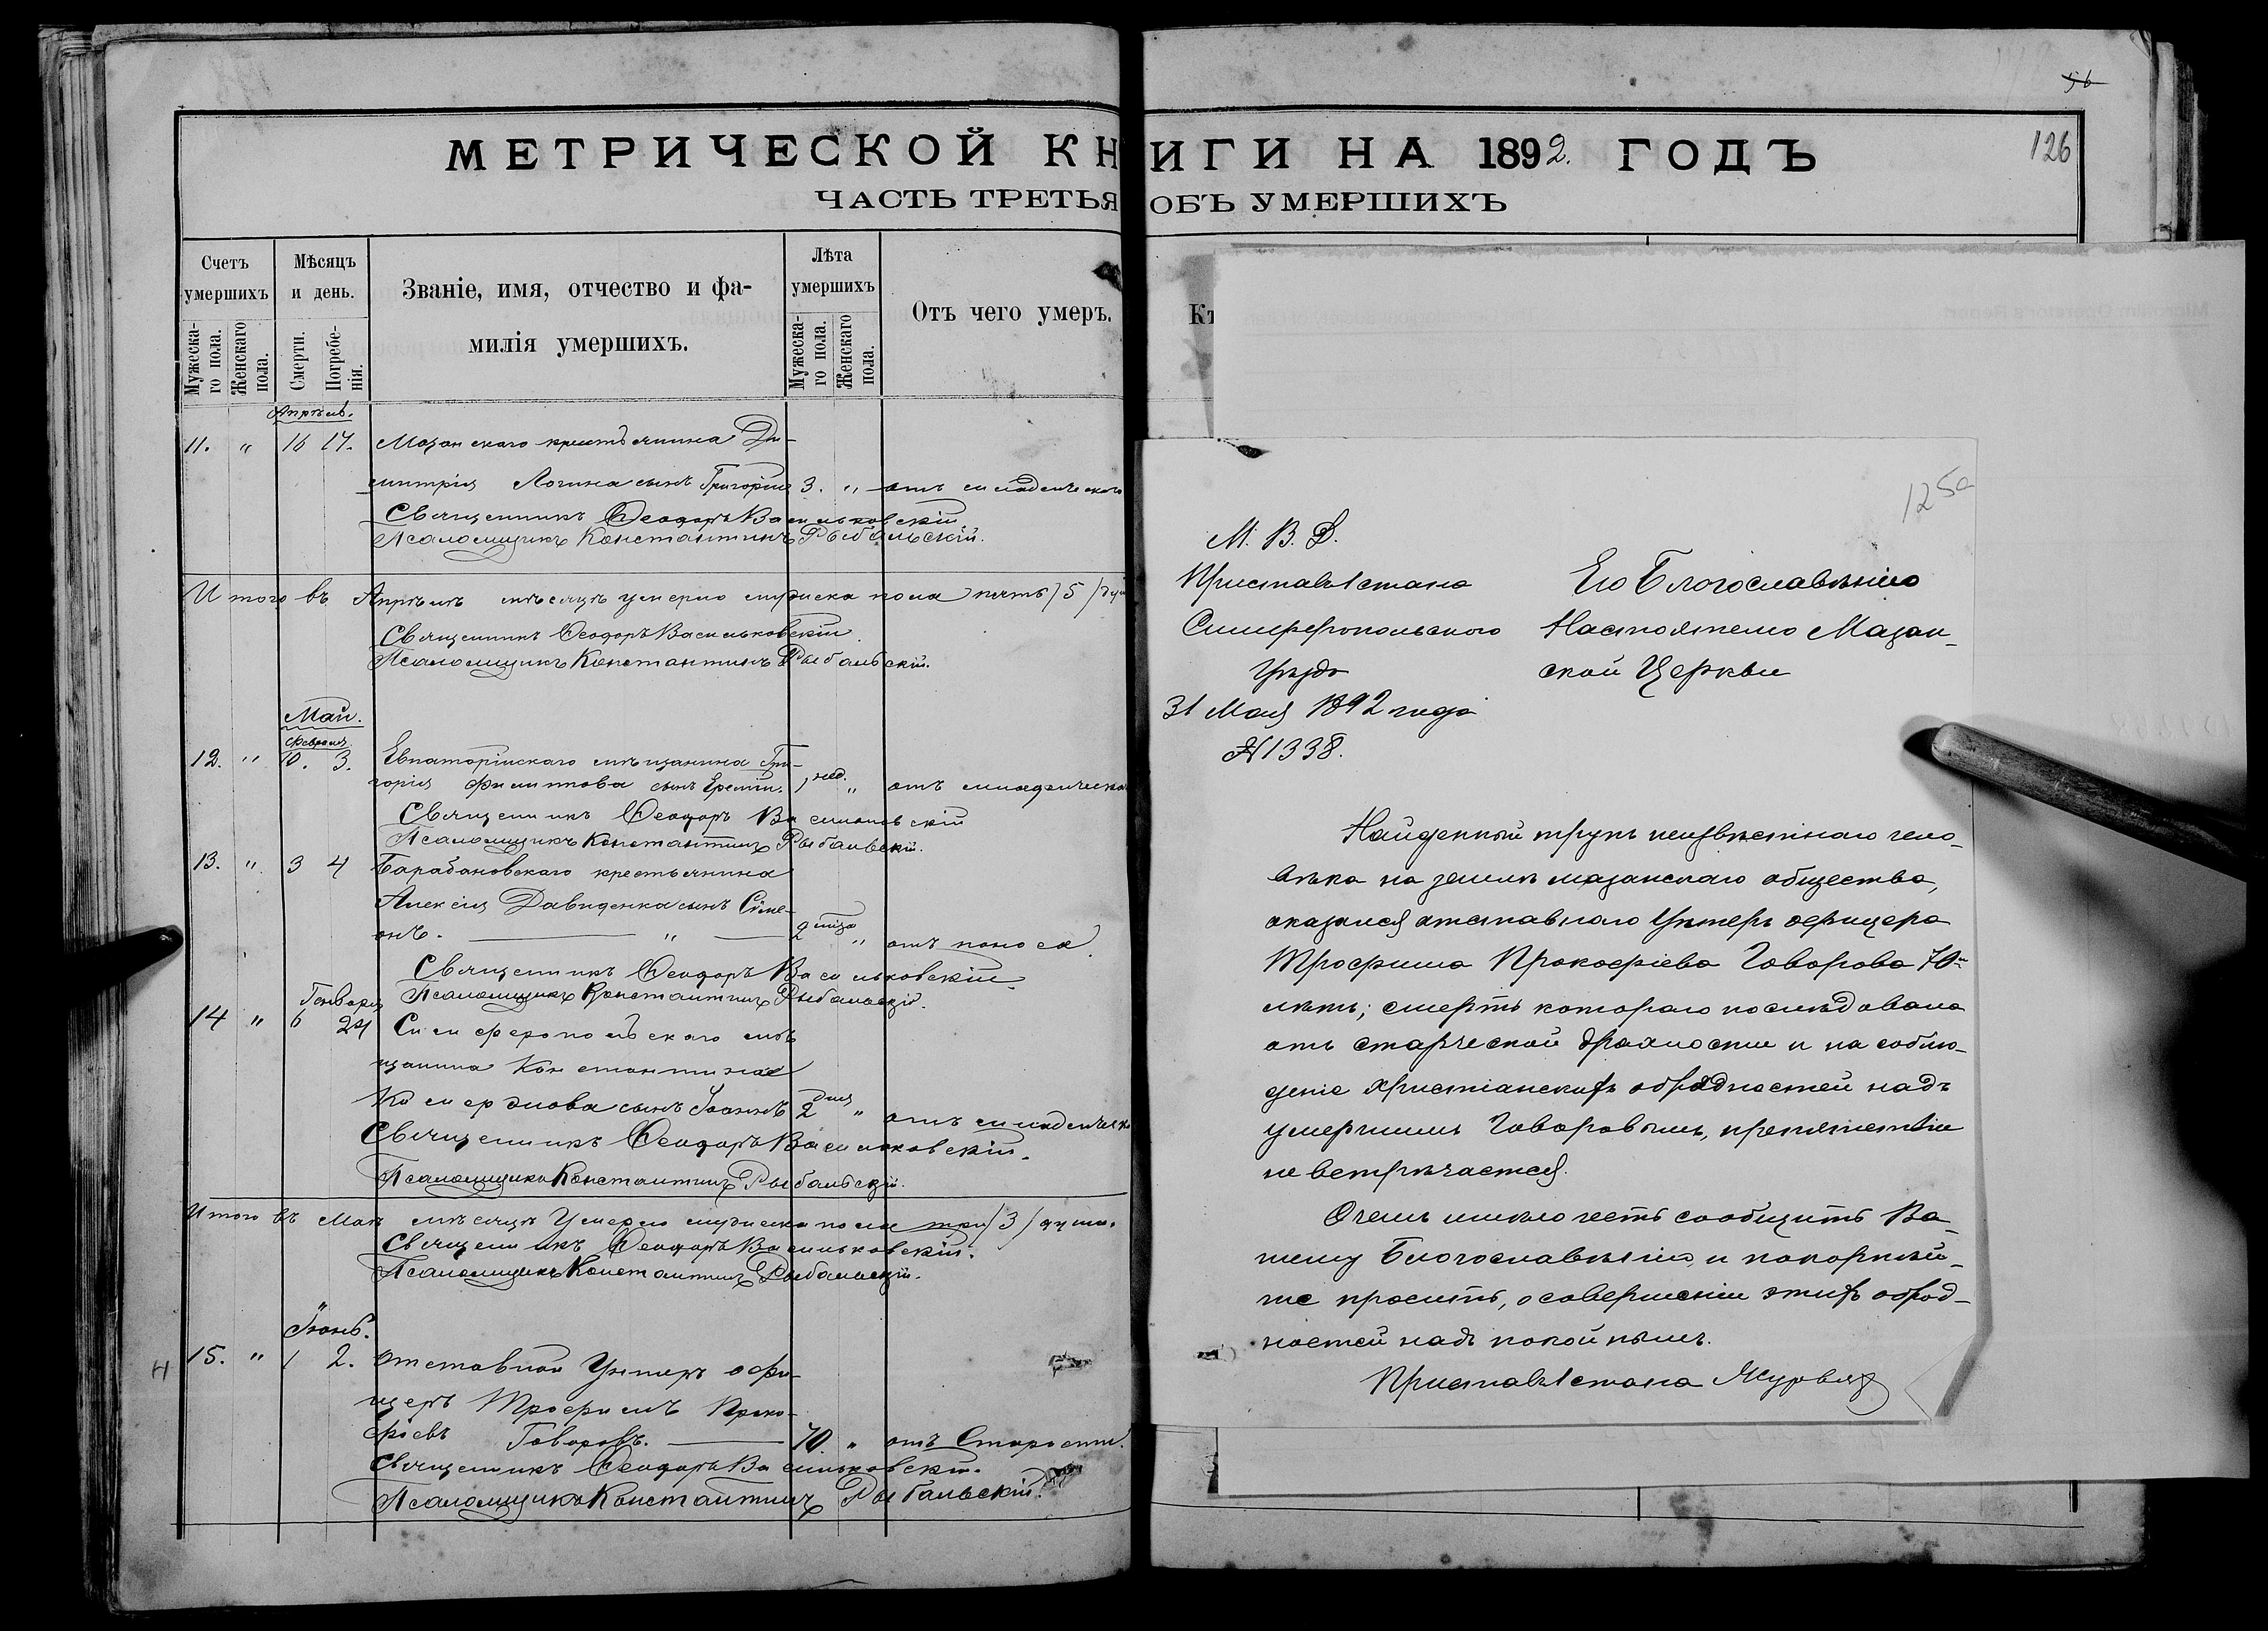 МЕТРИЧЕСКОЙ КНИГИ НА 1892. ГОДЪ
ЧАСТЬ ТРЕТЬЯ ОБЪ УМЕРШИХЪ
56
126
Счетъ умершихъ
Мужеска-го пола.
Женскаго пола.
Мѣсяцъ и день.
Смерти.
Погребе-нія.
Званіе, имя, отчество и фа-
милія умершихъ.
Лѣта умершихъ
Мужеска-го пола.
Женскаго пола.
Отъ чего умеръ.
Апрѣль.
11. " 16 17. Мазанскаго крестьянина Ди-
митрія Логина сынъ Григорій 3. " отъ младенческой
Священникъ Ѳеодоръ Васильковскій
Псаломщикъ Константинъ Рыбальскій.
Итого въ Апрѣлѣ мѣсяцѣ умерло мужеска пола пять /5/ душ
Священникъ Ѳеодоръ Васильковскій.
Псаломщикъ Константинъ Рыбальскій.
Май.
Февраля
12. " 10. 3. Евпаторійскаго мѣщанина Гри-
горія Филиппова сынъ Ерміи. 1 нед. " отъ младенческой
Священникъ Ѳеодоръ Васильковскій
Псаломщикъ Константинъ Рыбальскій.
13. " 3 4 Барабановскаго крестьянина
Алексія Давиденка сынъ Симе-
онъ. " 2 " отъ поноса.
Священникъ Ѳеодоръ Васильковскій
Псаломщикъ Константинъ Рыбальскій.
Генваря
14 " 6 24 Симферопольскаго мѣ
щанина Константина
сынъ Іоаннъ 2 дня " отъ младенческой
Священникъ Ѳеодоръ Васильковскій.
Псаломщикъ Константинъ Рыбальскій.
Итого въ Маѣ мѣсяцѣ Умерло мужеска пола три /3/ души.
Священникъ Ѳеодоръ Васильковскій.
Псаломщикъ Константинъ Рыбальскій.
Іюнь.
15. " 1 2. Отставной Унтеръ офи-
церъ Трофимъ Проко-
фіевъ Говоровъ. 70. " отъ Старости.
Священникъ Ѳеодоръ Васильковскій.
Псаломщикъ Константинъ Рыбальскій.
125а
М. В. Д.
Приставъ 1 стана
Симферопольского
Уѣзда
31 Мая 1892 года
№ 1338.
Его Благословѣнію
Настоятелю Мазан-
ской Церкви
Найденный трупъ неизвѣстнаго чело-
вѣка на землѣ мазанскаго общества,
оказался отставнаго Унтеръ офицера
Трофима Прокофіева Говорова 70
лѣтъ; смерть котораго послѣдовала
отъ старческой дряхлости и на соблю-
деніе христіанскихъ обрядностей надъ
умершимъ Говоровымъ, препятствій
не встрѣчается.
О чемъ имѣю честь сообщить Ва-
шему Благословѣнію, и покорнѣй-
ше просить, о совершеніи этихъ обряд-
ностей надъ покойнымъ.
Приставъ 1 стана